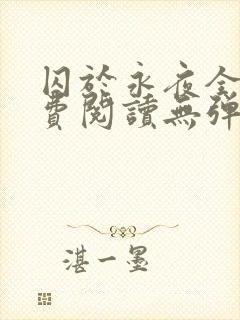 囚於永夜全
費閱讀無彈
湛一墨